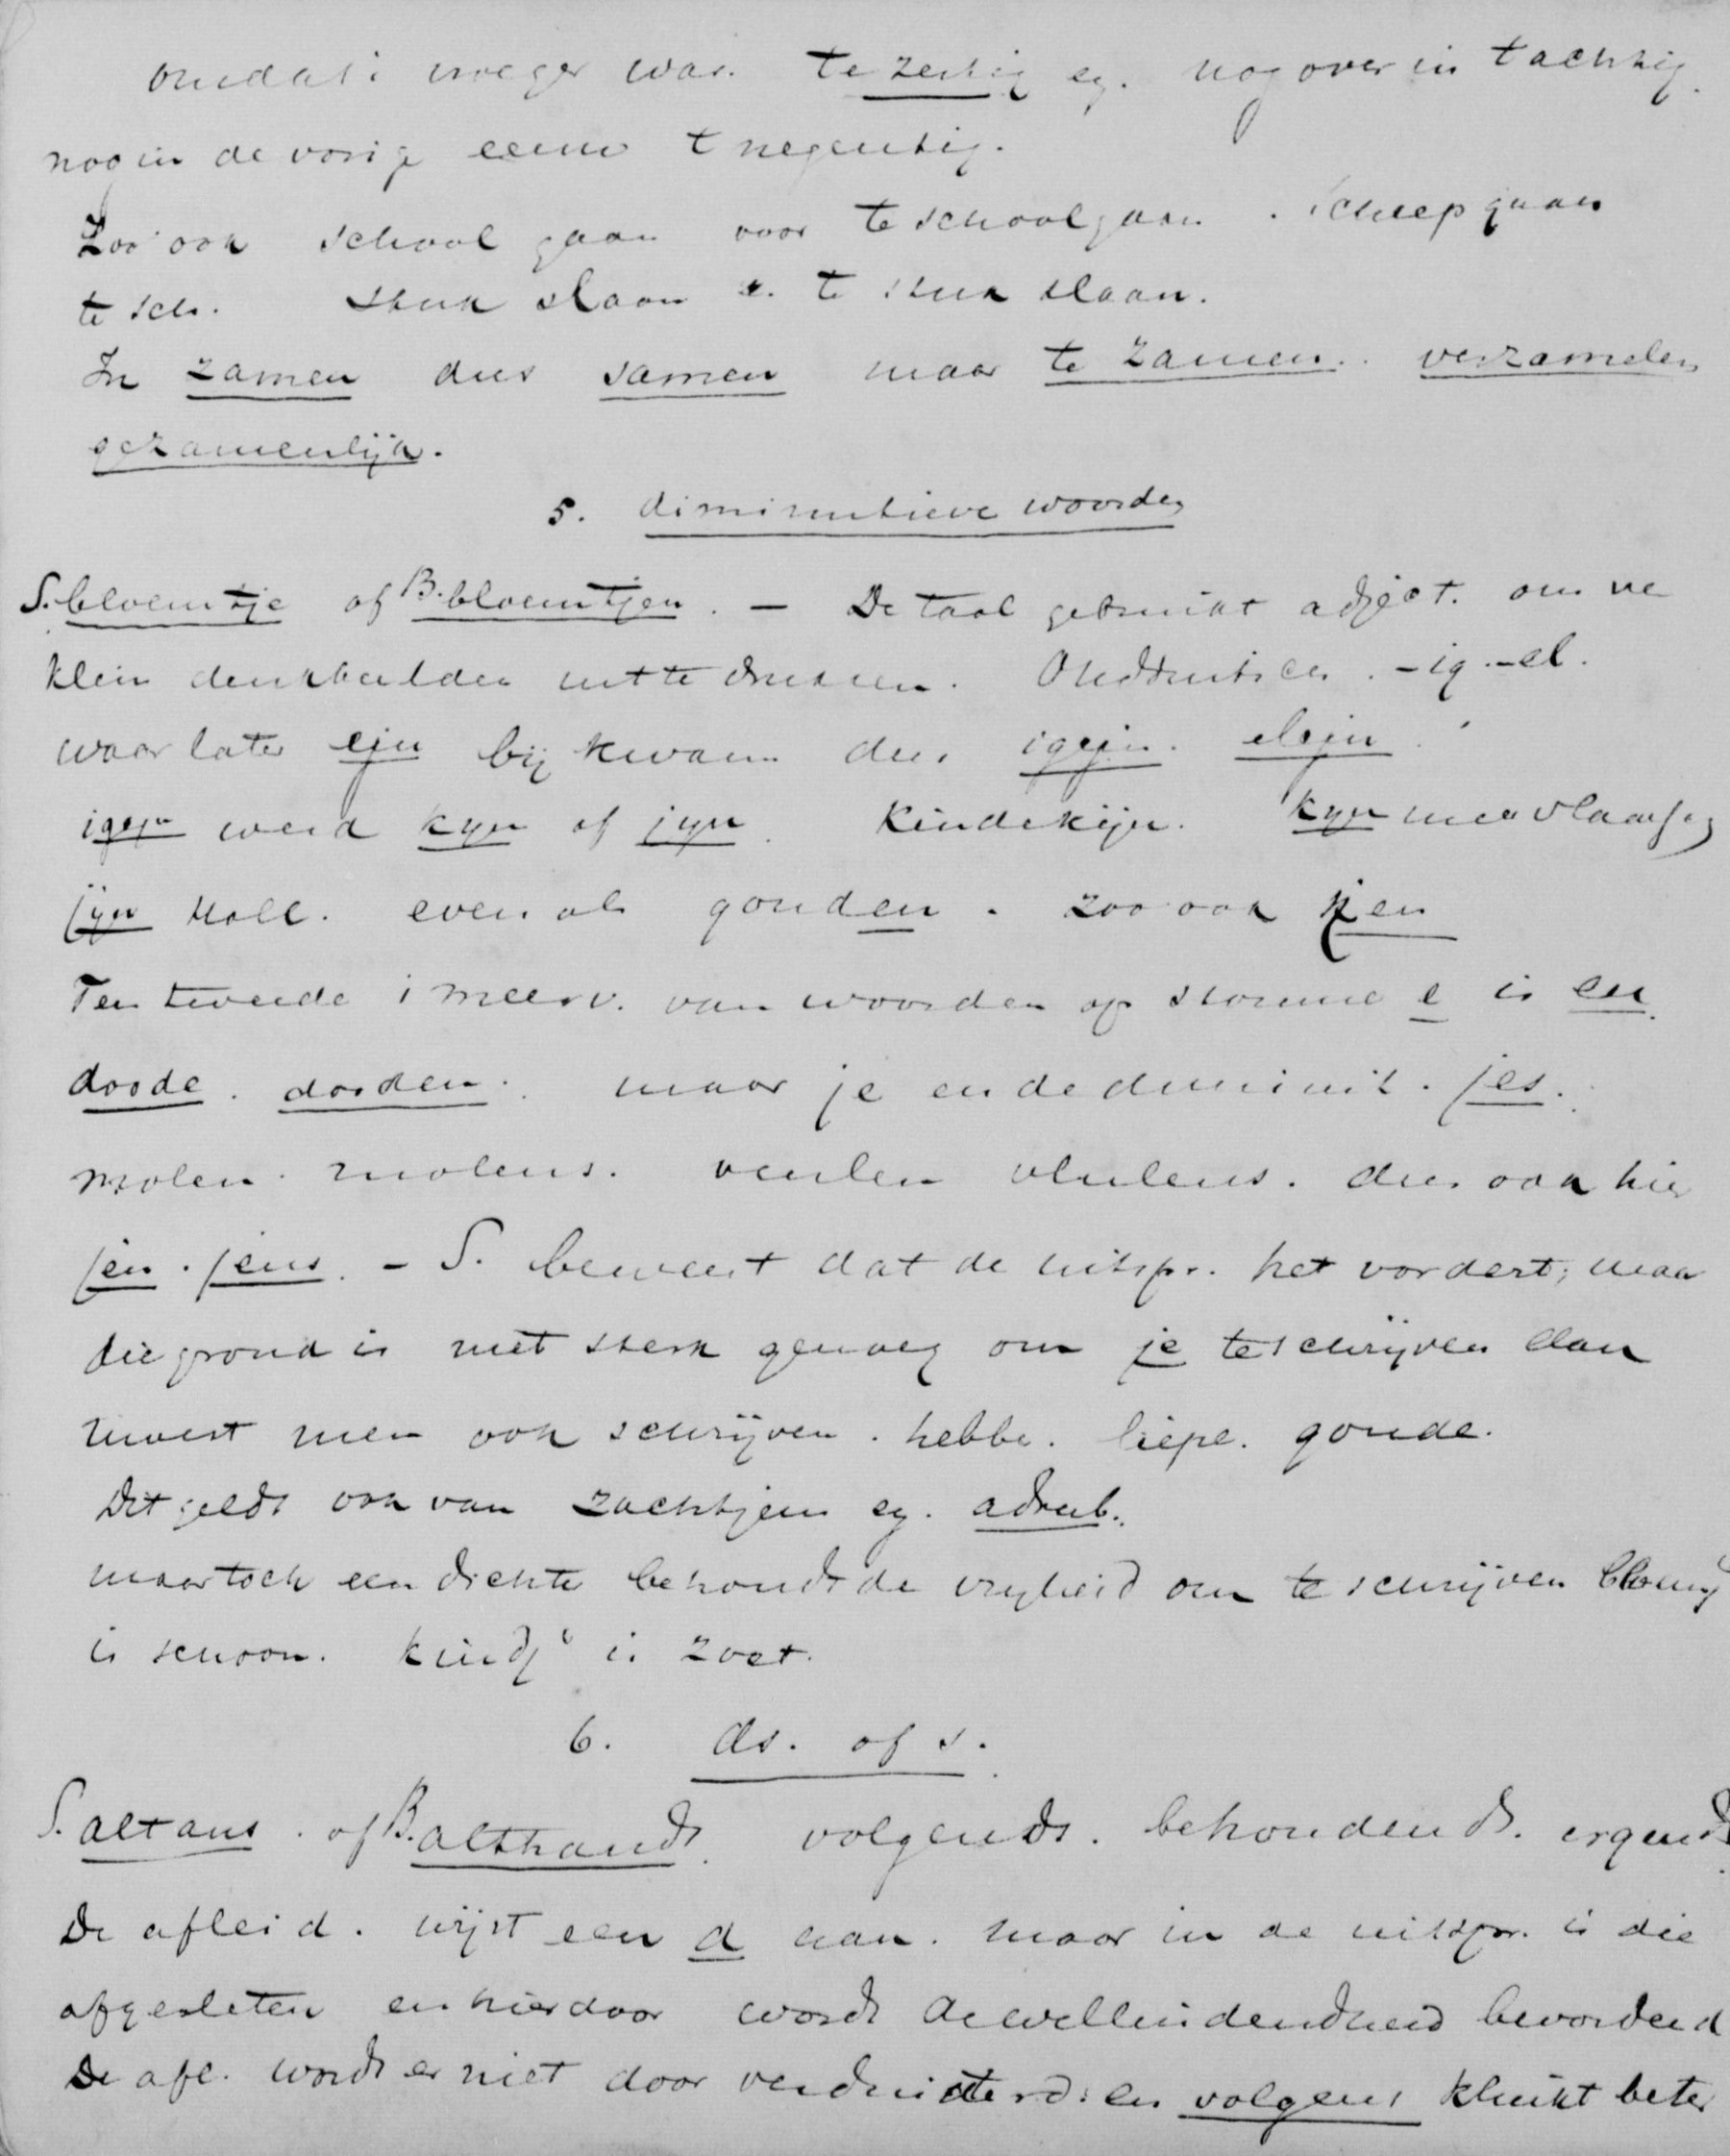 omdat i vroeger was. te zestig eg. nog over in tachtig.
nog in de vorige eeuw tnegentig.
Zoo ook school gaan voor te schoolgaan. scheep gaan
te sch. stuk slaan v. te stuk slaan.
In zamen dus samen maar te zamen. verzamelen
gezamenlijk.
5. diminutieve woorden
S. bloemtje of B. bloemtjen. — De taal gebruikt adject. om
klein denkbeelden uit te drukken. Oudduitsch. -ig. -el.
waar later ijn bij kwam dus igijn. elijn.
igijn werd kyn of jyn. Kindekijn. kyn meer vlaamsch
jyn Holl. even als gouden. zoo ook jen
Ten tweede i meerv. van woorden op stomme e is en.
doode. dooden. maar je en de diminit. jes.
molen. molens. veulen veulens. dus ook hier
jen. jens. - S. beweert dat de uitspr. het vordert; maar
die grond is niet sterk genoeg om je te schrijven dan
moest men ook schrijven. hebbe. liepe. goude.
Dit geldt ook van zachtjens eg. adverb.
maar toch een dichter behoudt de vryheid om te schrijven bloemj
is schoon. kindj' is zoet.
6. ds. of s.
S. altans. of B. althands. volgends. behoudends. ergends
De afleid. wijst een d aan. maar in de uitspr. is die
afgesleten en hierdoor wordt de welluidendheid bevorderd
De afl. wordt er niet door verduisterd: en volgens klinkt beter